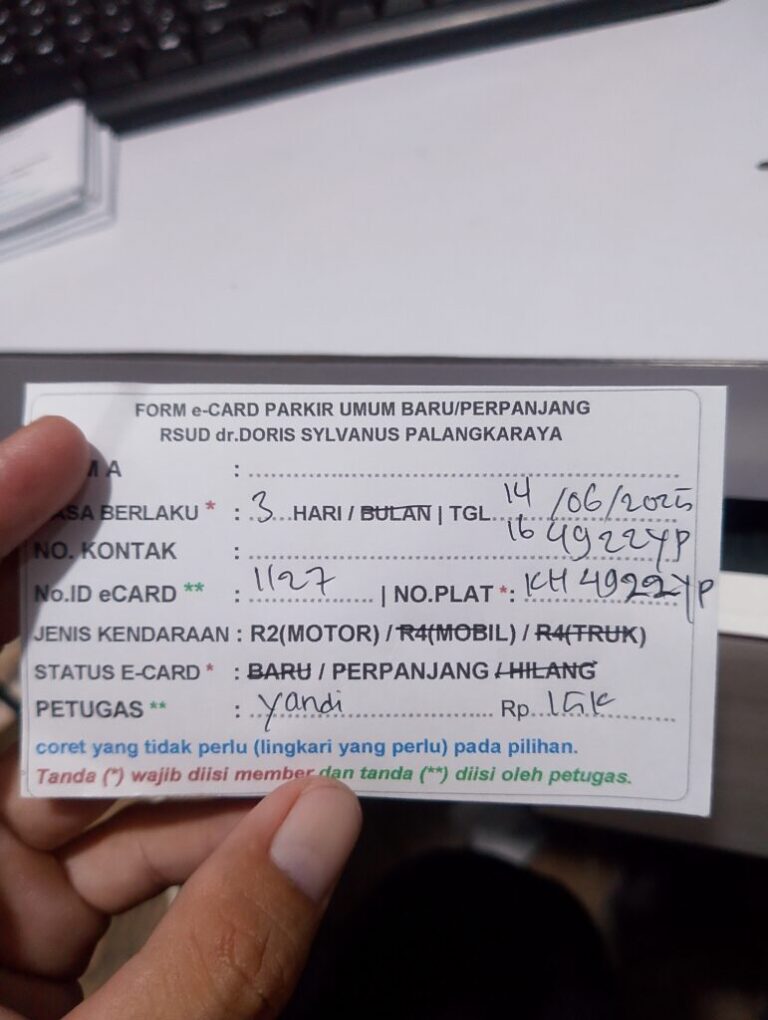 FORM e-CARD PARKIR UMUM BARU/PERPANJANG
RSUD dr.DORIS SYLVANUS PALANGKARAYA
M A : ....................
ASA BERLAKU * : 3 HARI / BULAN | TGL 14 /06/2025
16 4922YP
NO. KONTAK : ....................
No.ID eCARD ** : 1127 | NO.PLAT *: KH 4922YP
JENIS KENDARAAN : R2(MOTOR) / R4(MOBIL) / R4(TRUK)
STATUS E-CARD * : BARU / PERPANJANG / HILANG
PETUGAS ** : Yandi Rp. 15K
coret yang tidak perlu (lingkari yang perlu) pada pilihan.
Tanda (*) wajib diisi member dan tanda (**) diisi oleh petugas.